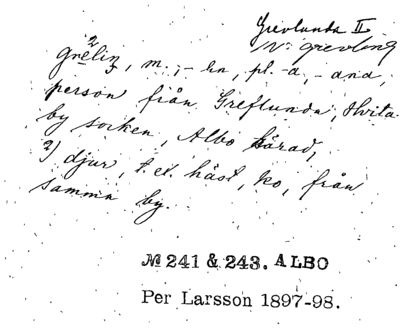 Grevlunda II
N: grevling
grēling, m., -en, pl. -a, -ana,
person från Greflunda, Hvita-
by socken, Albo härad,
2) djur, t. ex. häst, ko, från
samma by.
№ 241 & 243. ALBO
Per Larsson 1897-98.